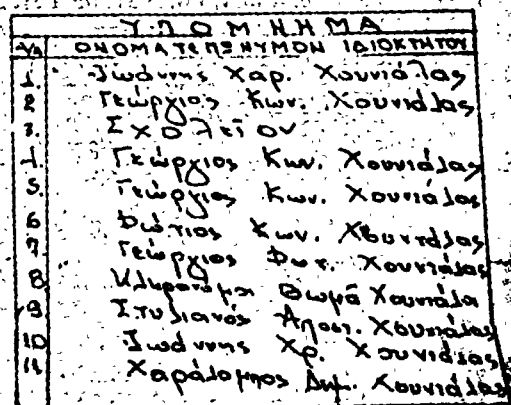 ΥΠΟΜΝΗΜΑ
Α/Α ΟΝΟΜΑΤΕΠΩΝΥΜΟΝ ΙΔΙΟΚΤΗΤΟΥ
1. Ιωάννης Χαρ. Χουνιάλας
2 Γεώργιος Κων. Χουνιάλας
3. Σχολείον
4. Γεώργιος Κων. Χουνιάλας
5. Γεώργιος Κων. Χουνιάλας
6 Φώτιος Κων. Χουνιάλας
7 Γεώργιος Φωτ. Χουνιάλας
8 Κληρονόμοι Θωμά Χουνιάλα
9 Στυλιανός Αποστ. Χουνιάλας
10 Ιωάννης Χρ. Χουνιάλας
11 Χαράλαμπος Δημ. Χουνιάλας